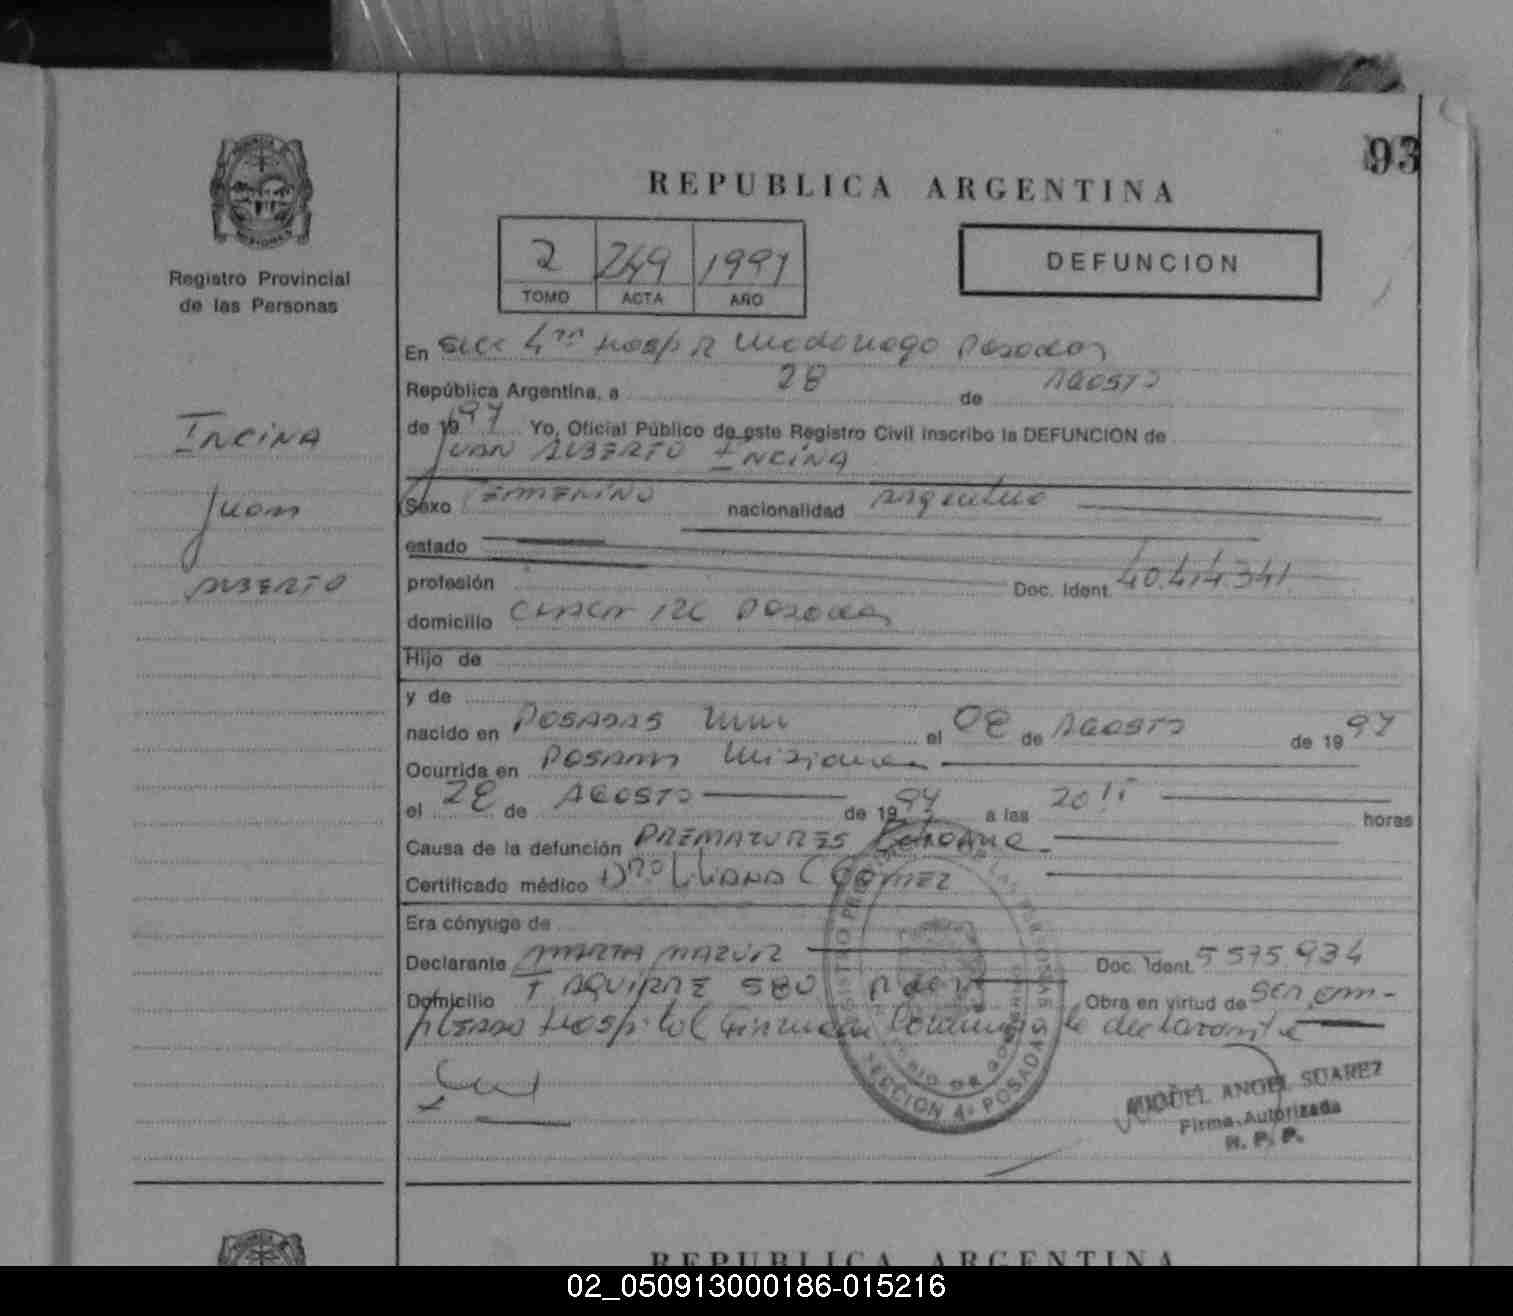 93
REPUBLICA ARGENTINA
DEFUNCION
2 249 1997
TOMO ACTA AÑO
Registro Provincial
de las Personas
Incina
Juan
Alberto
En Secc 4ta Hosp R Madariaga Posadas
República Argentina, a 28 de Agosto
de 1997 Yo, Oficial Público de este Registro Civil inscribo la DEFUNCION de
Juan Alberto Incina
Sexo nacionalidad Argentino
estado
profesión Doc. Ident. 40.414.341
domicilio Posadas
Hijo de
y de
nacido en Posadas el 08 de Agosto de 1997
Ocurrida en Posadas Misiones
el 28 de Agosto de 1997 a las 20 horas
Causa de la defunción
Certificado médico Dra Liliana C Gomez
Era cónyuge de
Declarante Marta Mazur Doc. Ident. 5 575.934
Domicilio F. Aguirre 580 Obra en virtud de Ser em-
pleado Hospital la declarante
REGISTRO PROVINCIAL DE LAS PERSONAS
MINISTERIO DE GOBIERNO
SECCION 4a POSADAS
MIGUEL ANGEL SUAREZ
Firma Autorizada
R. P. P.
REPUBLICA ARGENTINA
02_050913000186-015216